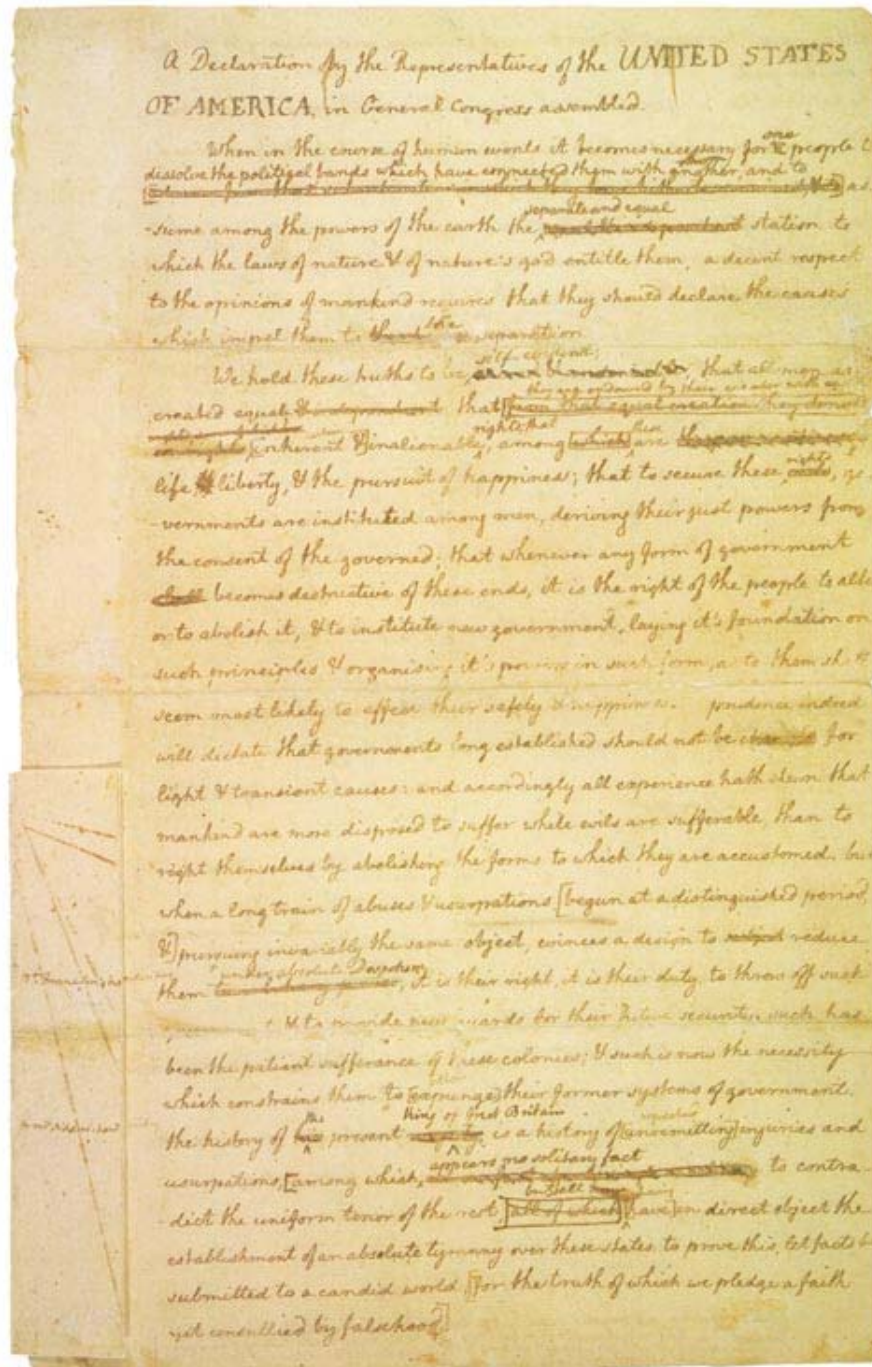 A Declaration by the Representatives of the UNITED STATES
OF AMERICA, in General Congress assembled.
When in the course of human events it becomes necessary for one people t
dissolve the political bands which have connected them with another, and to
as
separate and equal
-sume among the powers of the earth the station to
which the laws of nature & of nature's god entitle them, a decent respect
to the opinions of mankind requires that they should declare the causes
which impel them to the separation.
self-evident;
We hold these truths to be that all men ar
they are endowed by their creator with
created equal that from that equal creation they derive
rights that these
inherent & inalienable, among which are
life & liberty, & the pursuit of happiness; that to secure these rights, go
-vernments are instituted among men, deriving their just powers from
the consent of the governed; that whenever any form of government
shall becomes destructive of these ends, it is the right of the people to alte
or to abolish it, & to institute new government, laying it's foundation on
such principles & organising it's powers in such form, as to them sh
seem most likely to effect their safety & happiness. prudence indeed
will dictate that governments long established should not be changed for
light & transient causes: and accordingly all experience hath shewn that
mankind are more disposed to suffer while evils are sufferable, than to
right themselves by abolishing the forms to which they are accustomed. bu
when a long train of abuses & usurpations [begun at a distinguished period,
&] pursuing invariably the same object, evinces a design to reduce
under absolute Despotism
them it is their right, it is their duty, to throw off such
& to provide new guards for their future security. such has
been the patient sufferance of these colonies; & such is now the necessity
which constrains them to [expunge] their former systems of government.
the King of Great Britain
the history of present is a history of [unremitting] injuries and
appears no solitary fact
usurpations, [among which, to contra-
but all
-dict the uniform tenor of the rest, all of which have] in direct object the
establishment of an absolute tyranny over these states. to prove this, let facts b
submitted to a candid world, [for the truth of which we pledge a faith
yet unsullied by falsehood]